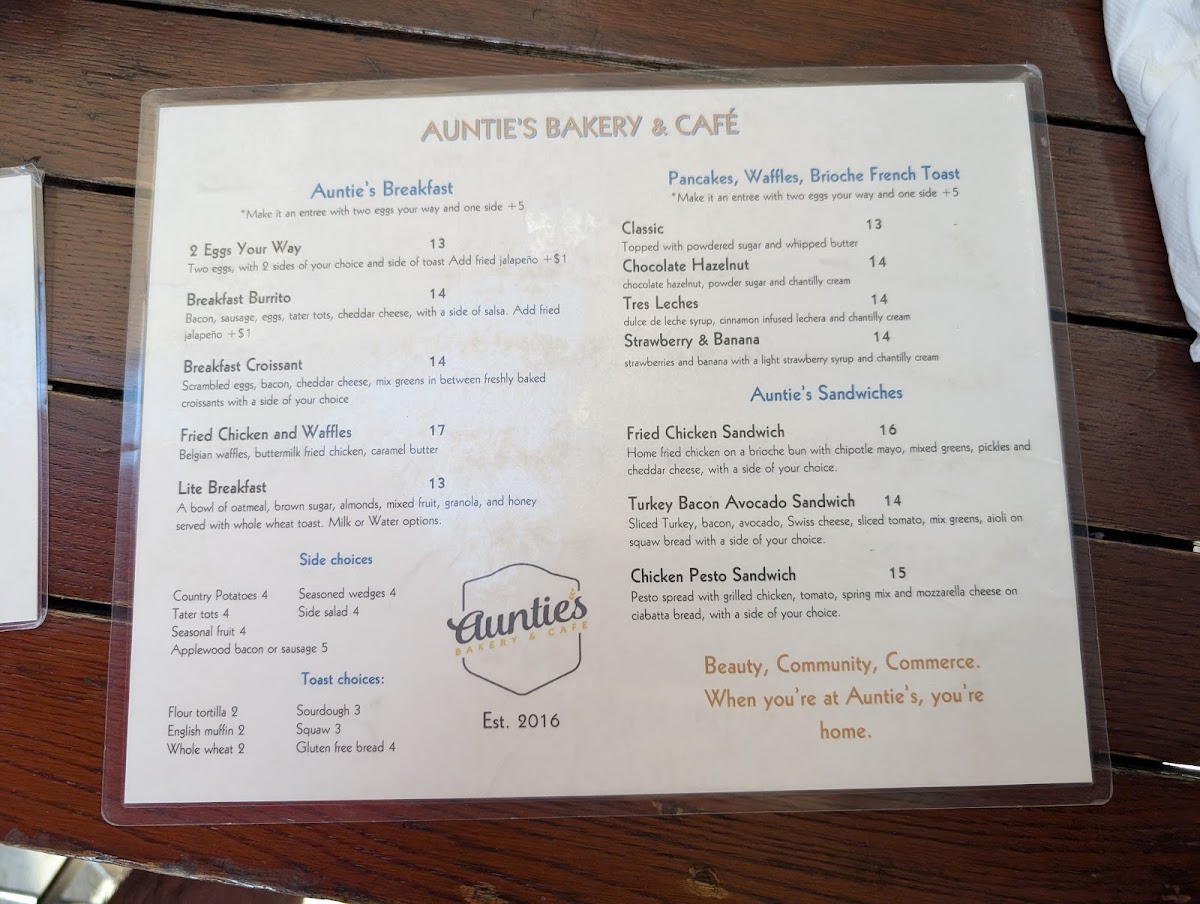 AUNTIE'S BAKERY & CAFÉ
Auntie's Breakfast
*Make it an entree with two eggs your way and one side +5
2 Eggs Your Way 13
Two eggs, with 2 sides of your choice and side of toast Add fried jalapeño +$1
Breakfast Burrito 14
Bacon, sausage, eggs, tater tots, cheddar cheese, with a side of salsa. Add fried
jalapeño +$1
Breakfast Croissant 14
Scrambled eggs, bacon, cheddar cheese, mix greens in between freshly baked
croissants with a side of your choice
Fried Chicken and Waffles 17
Belgian waffles, buttermilk fried chicken, caramel butter
Lite Breakfast 13
A bowl of oatmeal, brown sugar, almonds, mixed fruit, granola, and honey
served with whole wheat toast. Milk or Water options.
Side choices
Country Potatoes 4 Seasoned wedges 4
Tater tots 4 Side salad 4
Seasonal fruit 4
Applewood bacon or sausage 5
Toast choices:
Flour tortilla 2 Sourdough 3
English muffin 2 Squaw 3
Whole wheat 2 Gluten free bread 4
Auntie's
BAKERY & CAFE
Est. 2016
Pancakes, Waffles, Brioche French Toast
*Make it an entree with two eggs your way and one side +5
Classic 13
Topped with powdered sugar and whipped butter
Chocolate Hazelnut 14
chocolate hazelnut, powder sugar and chantilly cream
Tres Leches 14
dulce de leche syrup, cinnamon infused lechera and chantilly cream
Strawberry & Banana 14
strawberries and banana with a light strawberry syrup and chantilly cream
Auntie's Sandwiches
Fried Chicken Sandwich 16
Home fried chicken on a brioche bun with chipotle mayo, mixed greens, pickles and
cheddar cheese, with a side of your choice.
Turkey Bacon Avocado Sandwich 14
Sliced Turkey, bacon, avocado, Swiss cheese, sliced tomato, mix greens, aioli on
squaw bread with a side of your choice.
Chicken Pesto Sandwich 15
Pesto spread with grilled chicken, tomato, spring mix and mozzarella cheese on
ciabatta bread, with a side of your choice.
Beauty, Community, Commerce.
When you're at Auntie's, you're
home.